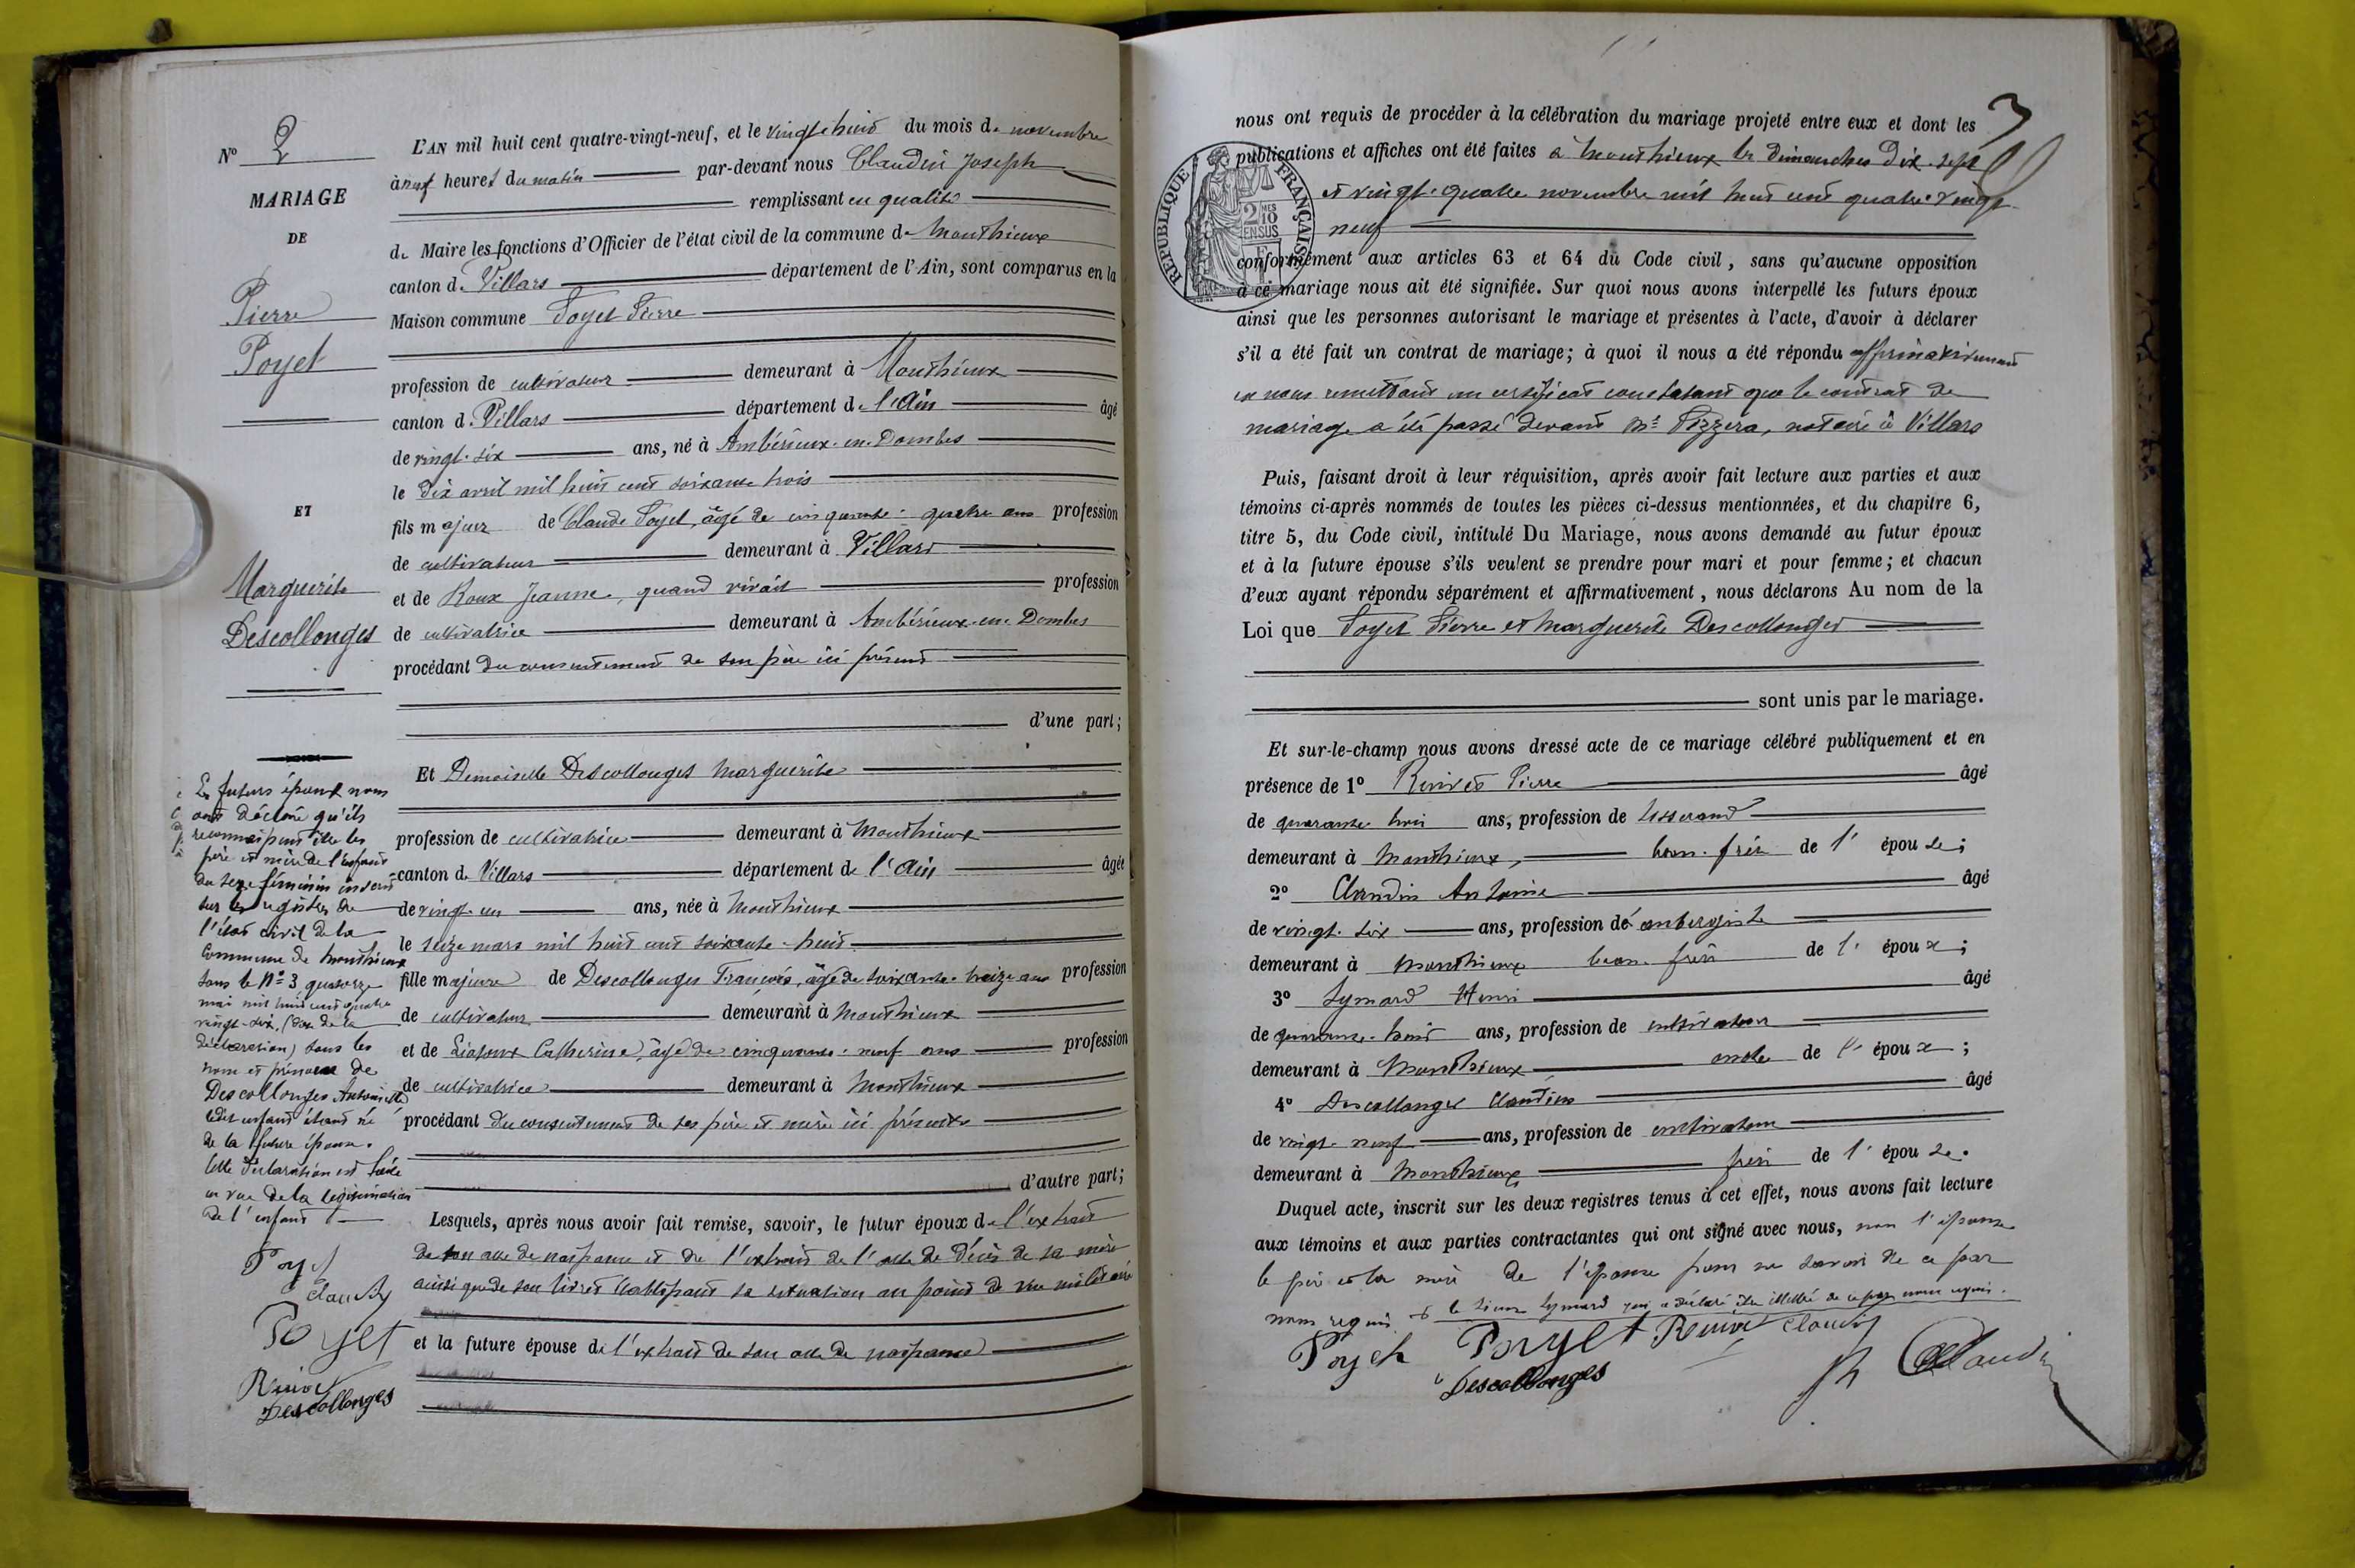 N° 2
MARIAGE
DE
Pierre
Poyet
ET
Marguerite
Descollonges
Les futurs époux nous
ont déclaré qu'ils
reconnaissent être les
père et mère de l'enfant
du sexe féminin inscrit
sur les registres de
l'état civil de la
commune de Monthieux
sous le N° 3 quatorze
mai mil huit cent quatre
vingt-six, (date de la
déclaration) sous les
nom et prénom de
Descollonges Antoinette
ledit enfant étant né
de la future épouse.
Cette déclaration est faite
en vue de la légitimation
de l'enfant
Poyet
Claudin
Poyet
Rivivet
Descollonges
L'AN mil huit cent quatre-vingt-neuf, et le vingt huit du mois de novembre
à neuf heures du matin par-devant nous Claudin Joseph
remplissant en qualité
de Maire les fonctions d'Officier de l'état civil de la commune de Monthieux
canton de Villars département de l'Ain, sont comparus en la
Maison commune Poyet Pierre
profession de cultivateur demeurant à Monthieux
canton de Villars département de l'Ain âgé
de vingt-six ans, né à Ambérieux-en-Dombes
le dix avril mil huit cent soixante trois
fils majeur de Claude Poyet, âgé de cinquante-quatre ans profession
de cultivateur demeurant à Villars
et de Roux Jeanne, quand vivait profession
de cultivatrice demeurant à Ambérieux-en-Dombes
procédant du consentement de son père ici présent
d'une part;
Et Demoiselle Descollonges Marguerite
profession de cultivatrice demeurant à Monthieux
canton de Villars département de l'Ain âgée
de vingt-un ans, née à Monthieux
le seize mars mil huit cent soixante-huit
fille majeure de Descollonges François, âgé de soixante-treize ans profession
de cultivateur demeurant à Monthieux
et de Catherine, âgée de cinquante-neuf ans profession
de cultivatrice demeurant à Monthieux
procédant du consentement de ses père et mère ici présents
d'autre part;
Lesquels, après nous avoir fait remise, savoir, le futur époux de l'extrait
de son acte de naissance et de l'extrait de l'acte de décès de sa mère
ainsi que de son livret établissant sa situation au point de vue militaire
et la future épouse de l'extrait de son acte de naissance
3
nous ont requis de procéder à la célébration du mariage projeté entre eux et dont les
publications et affiches ont été faites à Monthieux les dimanches dix-sept
et vingt-quatre novembre mil huit cent quatre-vingt-
neuf
REPUBLIQUE FRANÇAISE
2 MES 10 EN SUS
conformément aux articles 63 et 64 du Code civil, sans qu'aucune opposition
à ce mariage nous ait été signifiée. Sur quoi nous avons interpellé les futurs époux
ainsi que les personnes autorisant le mariage et présentes à l'acte, d'avoir à déclarer
s'il a été fait un contrat de mariage; à quoi il nous a été répondu affirmativement
en nous remettant un certificat constatant que le contrat de
mariage a été passé devant Me Pizzera, notaire à Villars
Puis, faisant droit à leur réquisition, après avoir fait lecture aux parties et aux
témoins ci-après nommés de toutes les pièces ci-dessus mentionnées, et du chapitre 6,
titre 5, du Code civil, intitulé Du Mariage, nous avons demandé au futur époux
et à la future épouse s'ils veulent se prendre pour mari et pour femme; et chacun
d'eux ayant répondu séparément et affirmativement, nous déclarons Au nom de la
Loi que Poyet Pierre et Marguerite Descollonges
sont unis par le mariage.
Et sur-le-champ nous avons dressé acte de ce mariage célébré publiquement et en
présence de 1° Pierre âgé
de quarante trois ans, profession de tisserand
demeurant à Monthieux, beau-frère de l'épouse;
2° Claudin Antoine âgé
de vingt-six ans, profession de aubergiste
demeurant à Monthieux beau-frère de l'époux;
3° Lymard Henri âgé
de quarante-huit ans, profession de cultivateur
demeurant à Monthieux oncle de l'époux;
4° Descollonges Claudius âgé
de vingt-neuf ans, profession de cultivateur
demeurant à Monthieux frère de l'épouse.
Duquel acte, inscrit sur les deux registres tenus à cet effet, nous avons fait lecture
aux témoins et aux parties contractantes qui ont signé avec nous, non l'épouse
le père et la mère de l'épouse pour ne savoir de ce par
nous requis et le sieur Lymard qui a déclaré être illettré de ce par nous requis.
Poyet Poyet Claudin
Descollonges Jh Claudin